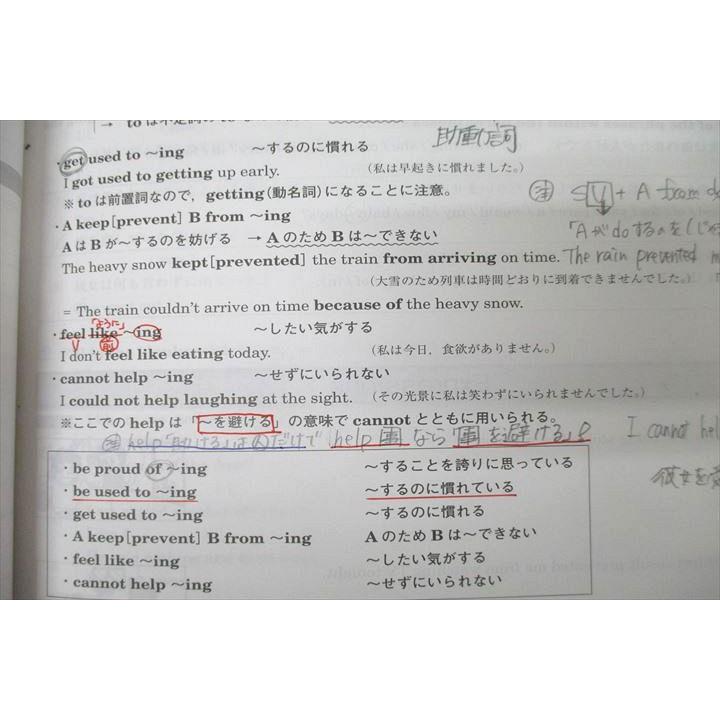 助動詞
・get used to ～ing ～するのに慣れる
I got used to getting up early. （私は早起きに慣れました。）
※ to は前置詞なので，getting（動名詞）になることに注意。
注 S V + A from do
・A keep[prevent] B from ～ing
A は B が～するのを妨げる → A のため B は～できない
「A が do するのを
The heavy snow kept[prevented] the train from arriving on time.
The rain prevented m
（大雪のため列車は時間どおりに到着できませんでした。）
= The train couldn't arrive on time because of the heavy snow.
「ように」
・feel like ～ing ～したい気がする
V 前
I don't feel like eating today. （私は今日，食欲がありません。）
・cannot help ～ing ～せずにいられない
I could not help laughing at the sight. （その光景に私は笑わずにいられませんでした。）
※ここでの help は「～を避ける」の意味で cannot とともに用いられる。
注 help「助ける」は人だけで help 事 なら「事を避ける」!
I cannot hel
・be proud of ～ing ～することを誇りに思っている
彼女を
・be used to ～ing ～するのに慣れている
・get used to ～ing ～するのに慣れる
・A keep[prevent] B from ～ing A のため B は～できない
・feel like ～ing ～したい気がする
・cannot help ～ing ～せずにいられない